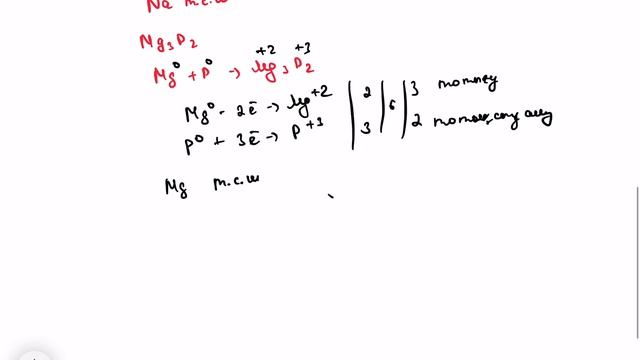 Na m.c.w
Mg3P2
Mg⁰ + P⁰ → Mg⁺²3 P⁺³2
Mg⁰ - 2ē → Mg⁺² | 2 | 6 | 3
P⁰ + 3ē → P⁺³ | 3 | | 2
Mg m.c.w